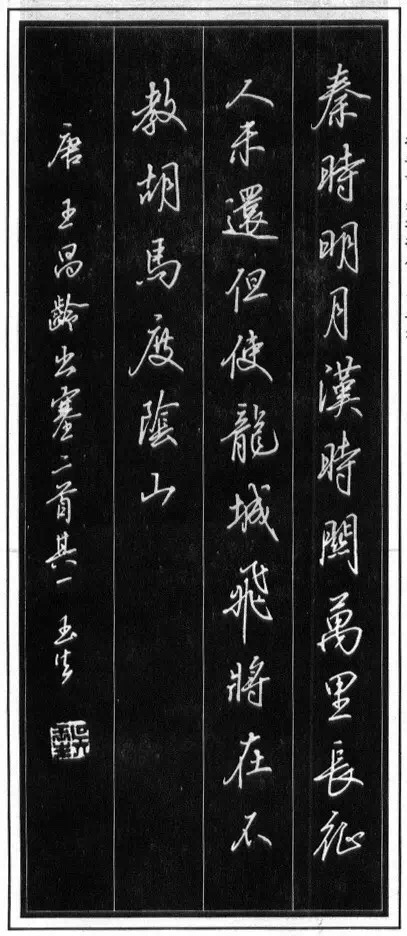 秦時明月漢時關萬里長征
人未還但使龍城飛將在不
教胡馬度陰山
唐王昌齡出塞二首其一 玉生